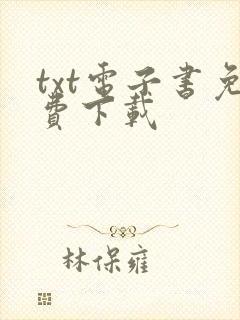 txt電子書免
費下載
林保雍